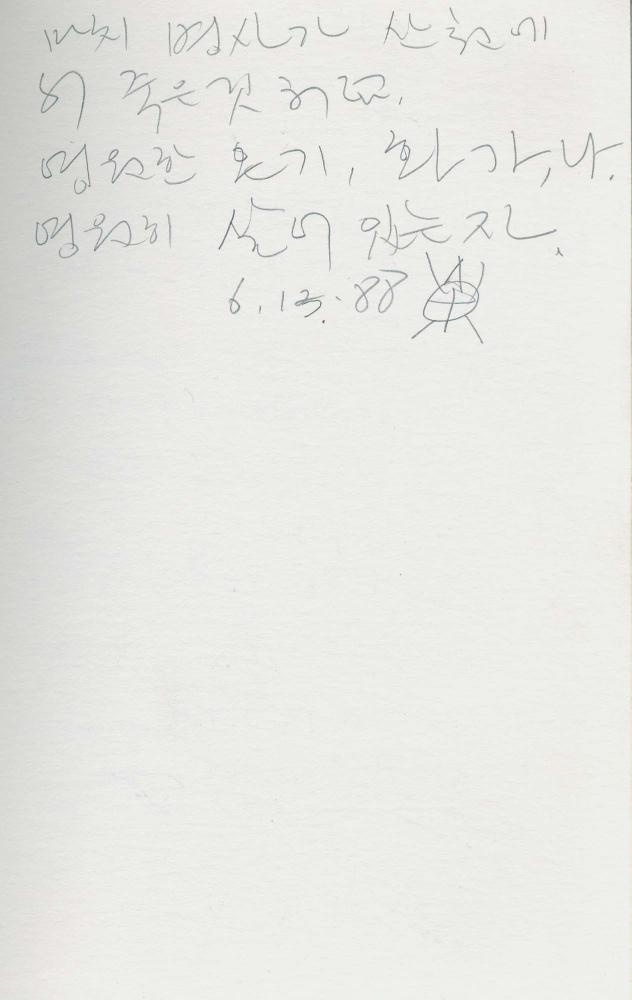 마치 병사가 산화에
서 죽은것 처럼.
영원한 호기, 화가, 나.
영원히 살어 있는 자
6. 13. 88